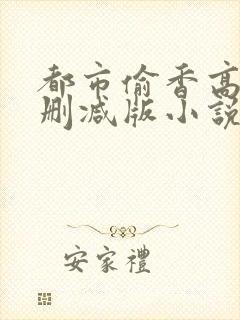 都市偷香高
删减版小說
安家禮